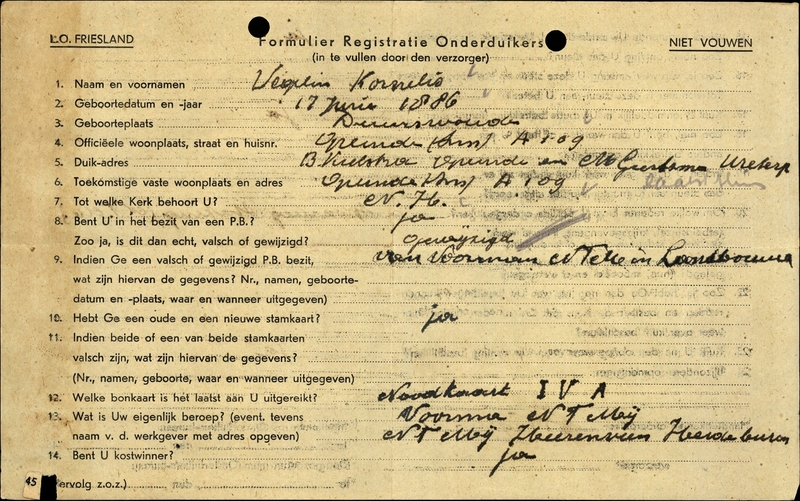 L.O. FRIESLAND
Formulier Registratie Onderduikers
NIET VOUWEN
(in te vullen door den verzorger)
1. Naam en voornamen Veglin Kornelis
2. Geboortedatum en -jaar 17 Juni 1886
3. Geboorteplaats Duurswoude
4. Officiëele woonplaats, straat en huisnr. A 109
5. Duik-adres en Ureterp
6. Toekomstige vaste woonplaats en adres A 109
7. Tot welke Kerk behoort U? N.H.
8. Bent U in het bezit van een P.B.? ja
Zoo ja, is dit dan echt, valsch of gewijzigd? gewijzigd
9. Indien Ge een valsch of gewijzigd P.B. bezit, van Voorman in Landbouwer
wat zijn hiervan de gegevens? Nr., namen, geboorte-
datum en -plaats, waar en wanneer uitgegeven)
10. Hebt Ge een oude en een nieuwe stamkaart? ja
11. Indien beide of een van beide stamkaarten
valsch zijn, wat zijn hiervan de gegevens?
(Nr., namen, geboorte, waar en wanneer uitgegeven)
12. Welke bonkaart is het laatst aan U uitgereikt? Noodkaart IV A
13. Wat is Uw eigenlijk beroep? (event. tevens Voorman N T Mij
naam v. d. werkgever met adres opgeven) N T Mij Heerenveen
14. Bent U kostwinner? ja
45
(Vervolg z.o.z.)